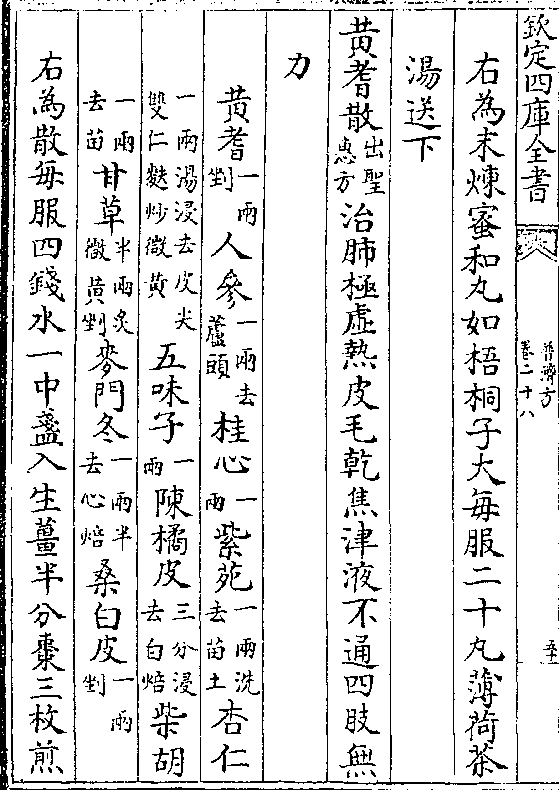 欽定四庫全書
普濟方
卷二十八
右為末煉蜜和丸如梧桐子大每服二十丸薄荷茶
湯送下
黄耆散出聖惠方治肺極虚熱皮毛乾焦津液不通四肢無
力
黄耆一兩剉人參一兩去蘆頭桂心一兩紫苑一兩洗去苗土杏仁
一兩湯浸去皮尖雙仁麩炒微黄五味子一兩陳橘皮三分浸去白焙柴胡
一兩去苗甘草半兩炙微黄剉麥門冬一兩半去心焙桑白皮一兩剉
右為散每服四錢水一中盞入生薑半分棗三枚煎